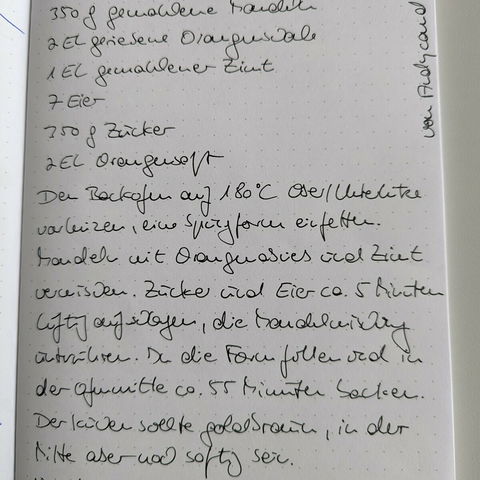 350 g gemahlene Mandeln
2 EL geriesene Orangenschale
1 EL gemahlener Zimt
7 Eier
350 g Zucker
2 EL Orangensaft
Den Backofen auf 180°C Ober/Unterhitze
vorheizen, eine Springform einfetten.
Mandeln mit Orangen und Zimt
vermischen. Zucker und Eier ca. 5 Minuten
luftig aufschlagen, die Mandelmischung
unterrühren. In die Form füllen und in
der Ofenmitte ca. 55 Minuten backen.
Der Kuchen sollte goldbraun, in der
Mitte aber noch saftig sein.
von Andycand